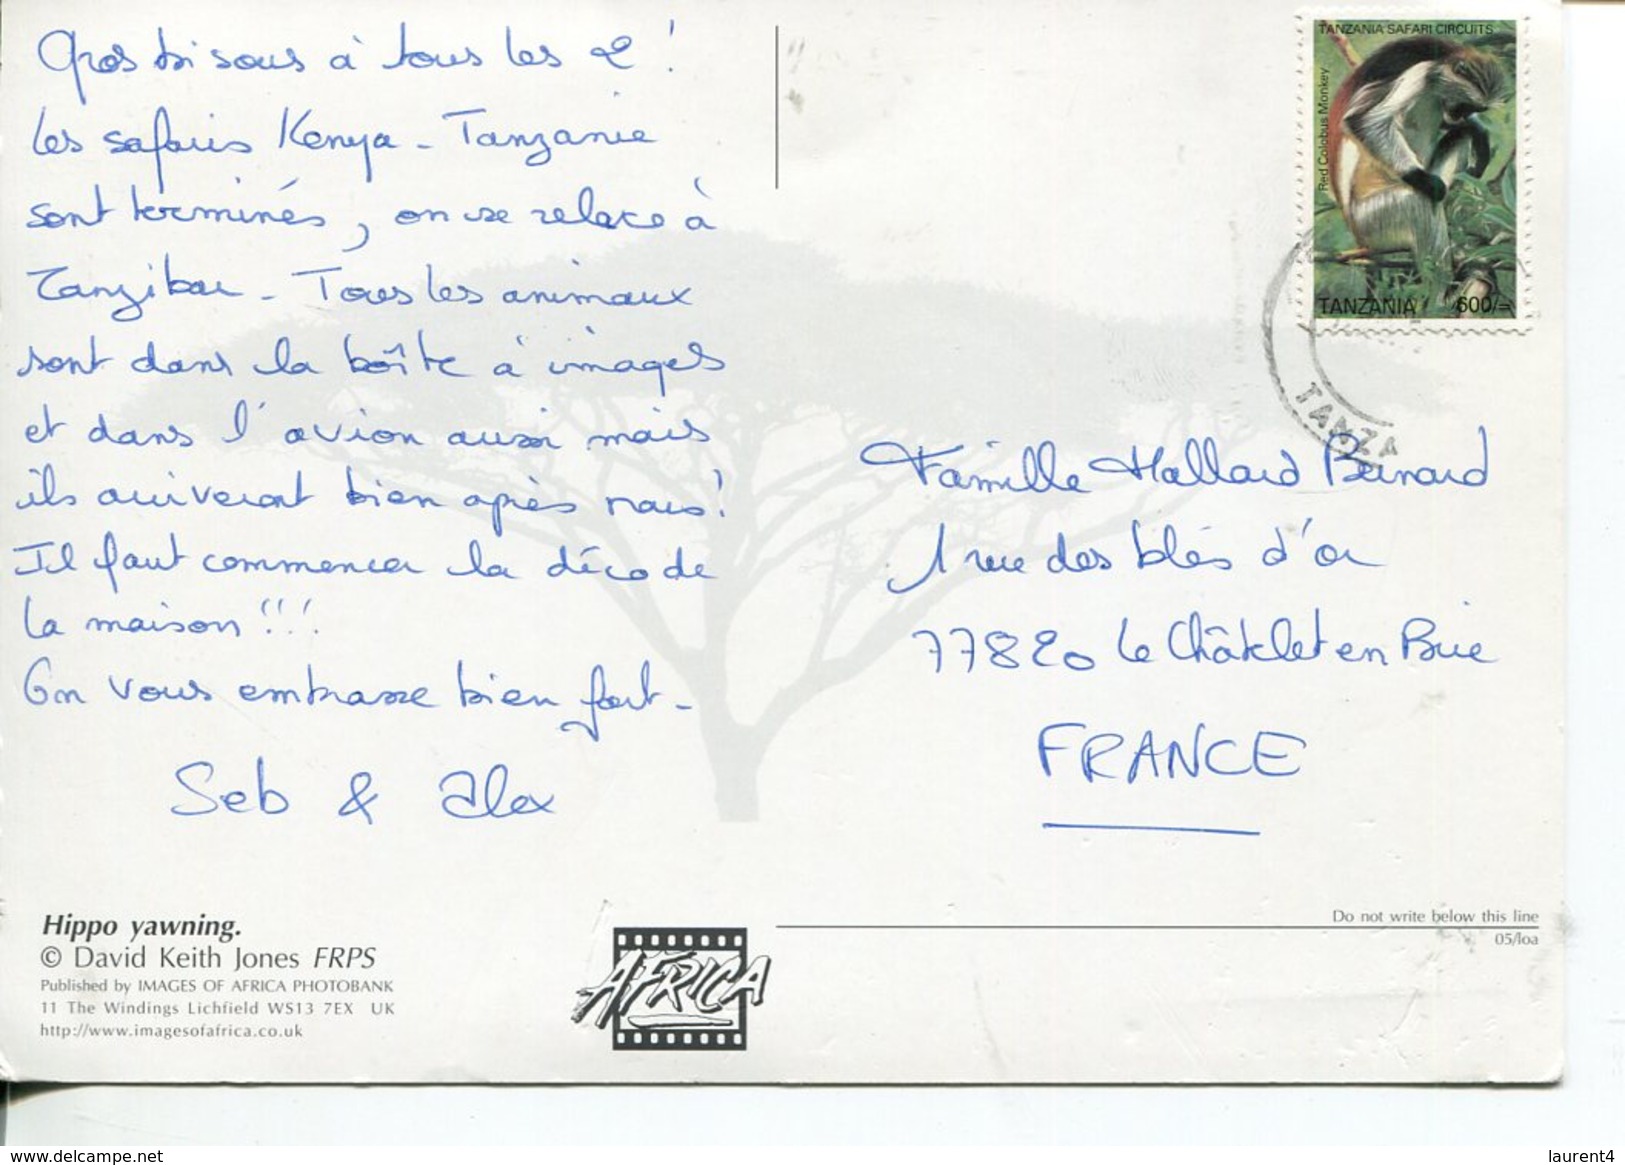 Gros bisous à tous les 2 !
Les safaris Kenya - Tanzanie
sont terminés, on se relaxe à
Zanzibar - Tous les animaux
sont dans la boîte à images
et dans l'avion aussi mais
ils arriveront bien après nous !
Il faut commencer la déco de
la maison !!!
On vous embrasse bien fort -
Seb & Alex
Hippo yawning.
© David Keith Jones FRPS
Published by IMAGES OF AFRICA PHOTOBANK
11 The Windings Lichfield WS13 7EX UK
http://www.imagesofafrica.co.uk
AFRICA
TANZANIA SAFARI CIRCUITS
Red Colobus Monkey
TANZANIA 600/=
TANZA
Famille Hallard Bernard
1 rue des blés d'or
77820 Le Châtelet en Brie
FRANCE
Do not write below this line
05/loa
www.delcampe.net
laurent4